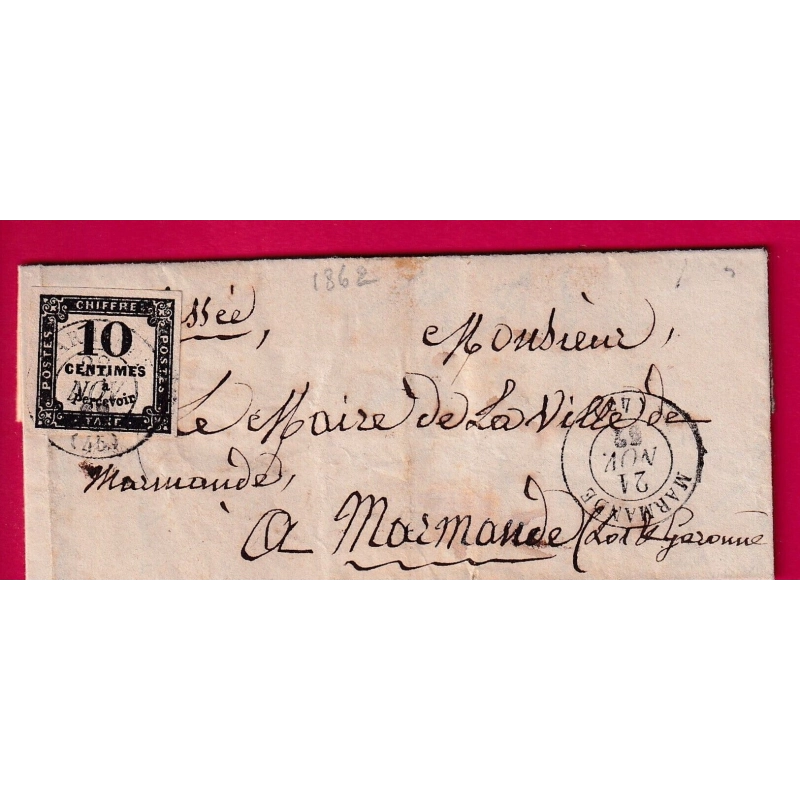 1862
CHIFFRE
POSTES
10
CENTIMES
à
Percevoir
POSTES
TAXE
NOV.
(45)
ssée,
Monsieur,
Le Maire de La Ville de
Marmande,
à Marmande (Lot & Garonne
MARMANDE
21
NOV.
62